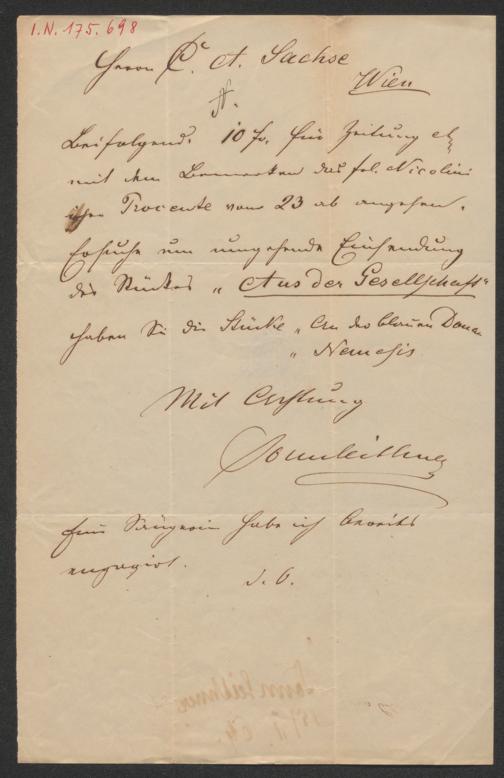 I.N. 175.698
Herrn C. A. Sachse
Wien
Beifolgend. 10 fr. für Zeitung etz
mit dem Bemerken das frl. Nicolini
ihre Procente vom 23 ab angehen.
Ersuche um umgehende Einsendung
des Stückes „Aus der Gesellschaft"
haben Sie die Stücke „An der blauen Donau
„ Nemesis
Mit Achtung
Sonnleithner
Eine Sängerin habe ich bereits
engagirt.
d. O.